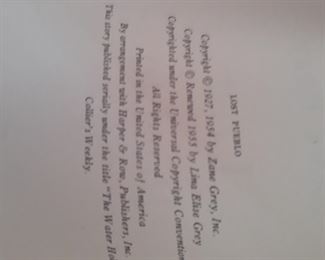 LOST PUEBLO
Copyright © 1927, 1954 by Zane Grey, Inc.
Copyright © Renewed 1955 by Lina Elise Grey
Copyrighted under the Universal Copyright Convention
All Rights Reserved
Printed in the United States of America
By arrangement with Harper & Row, Publishers, Inc.
This story published serially under the title "The Water Ho
Collier's Weekly.